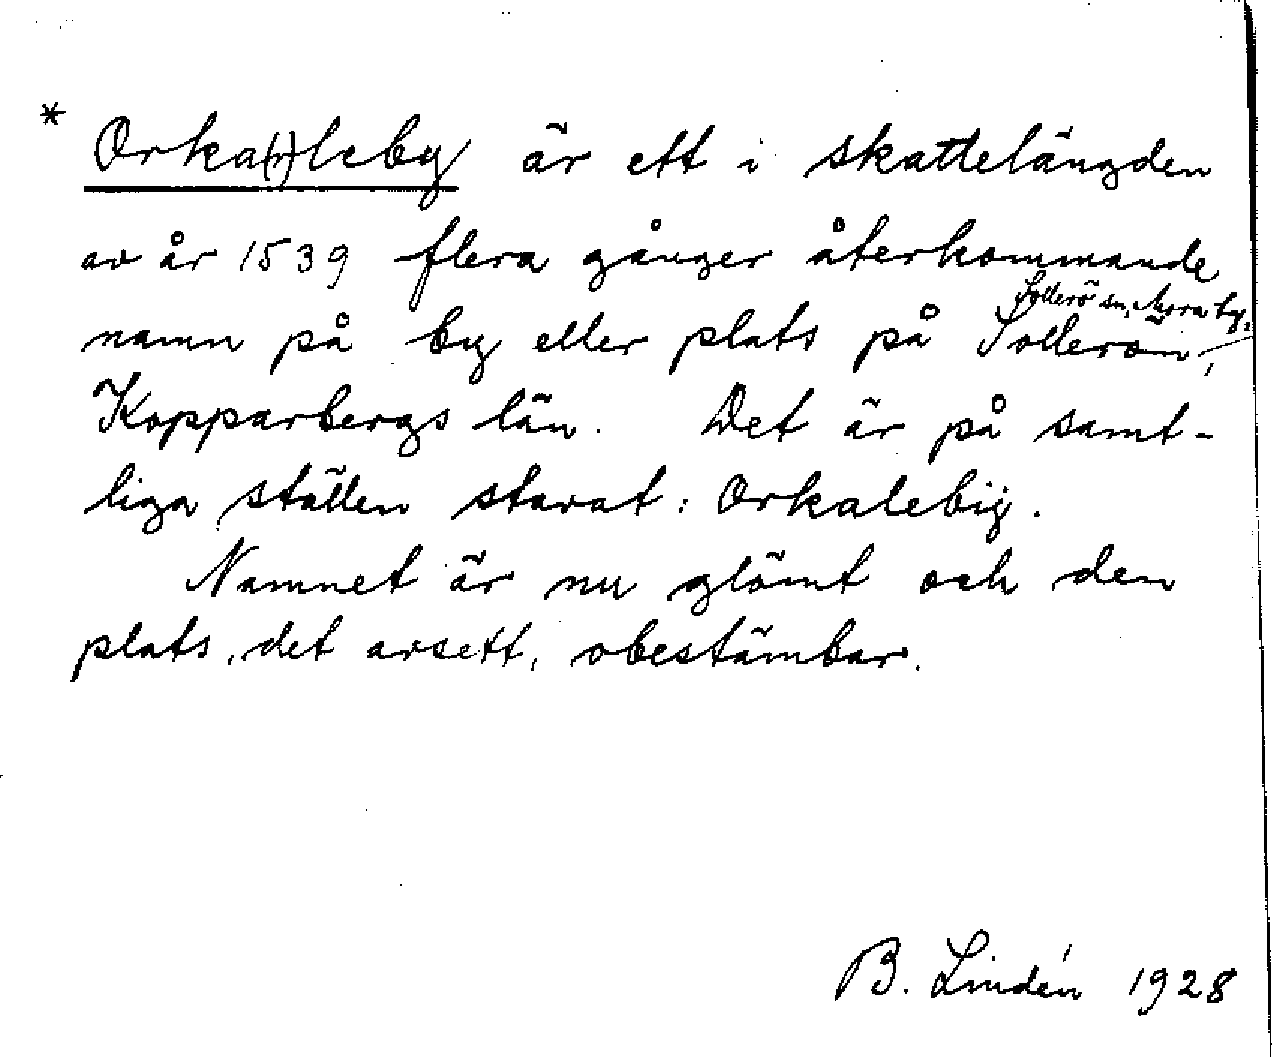 * Orka(r)leby är ett i skattelängden
av år 1539 flera gånger återkommande
Sollerö sn, Mora tg.
namn på by eller plats på Sollerön,
Kopparbergs län. Det är på samt-
liga ställen stavat: Orkalebÿ.
Namnet är nu glömt och den
plats, det avsett, obestämbar.
B. Lindén 1928